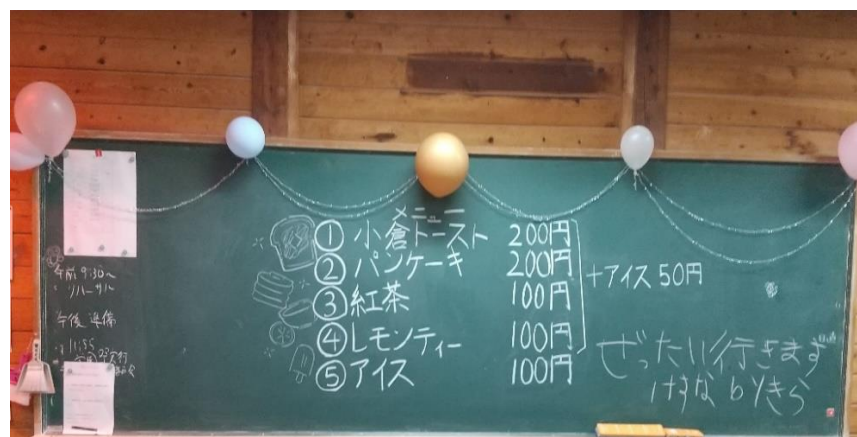 メニュー
① 小倉トースト 200円
② パンケーキ 200円
③ 紅茶 100円
④ レモンティー 100円
⑤ アイス 100円
+アイス 50円
ぜったい行きます
けすな byきら
午前 9:30~
リハーサル
午後 準備
11:55